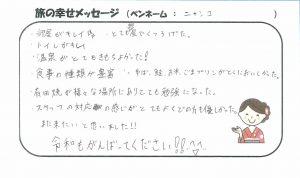 旅の幸せメッセージ (ペンネーム: ニャンコ )
・部屋がキレイ とても広くてくつろげた。
・トイレがキレイ
・温泉がとてもきもちよかった!
・食事の種類が豊富 そば、鮭、お米、ごまプリンがとくにおいしかった。
・有田焼が様々な場所にありとても勉強になった。
・スタッフの対応の感じがとてもよくての方も優しかった。
また来たいと思いました!!
令和もがんばってください!!^^